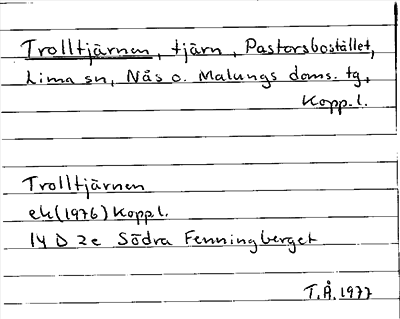 Trolltjärnen, tjärn, Pastorsbostället,
Lima sn, Nås o. Malungs doms. tg,
Kopp. l.
Trolltjärnen
ek (1976) Koppl.
14 D 2e Södra Fenningberget
T.Å. 1977